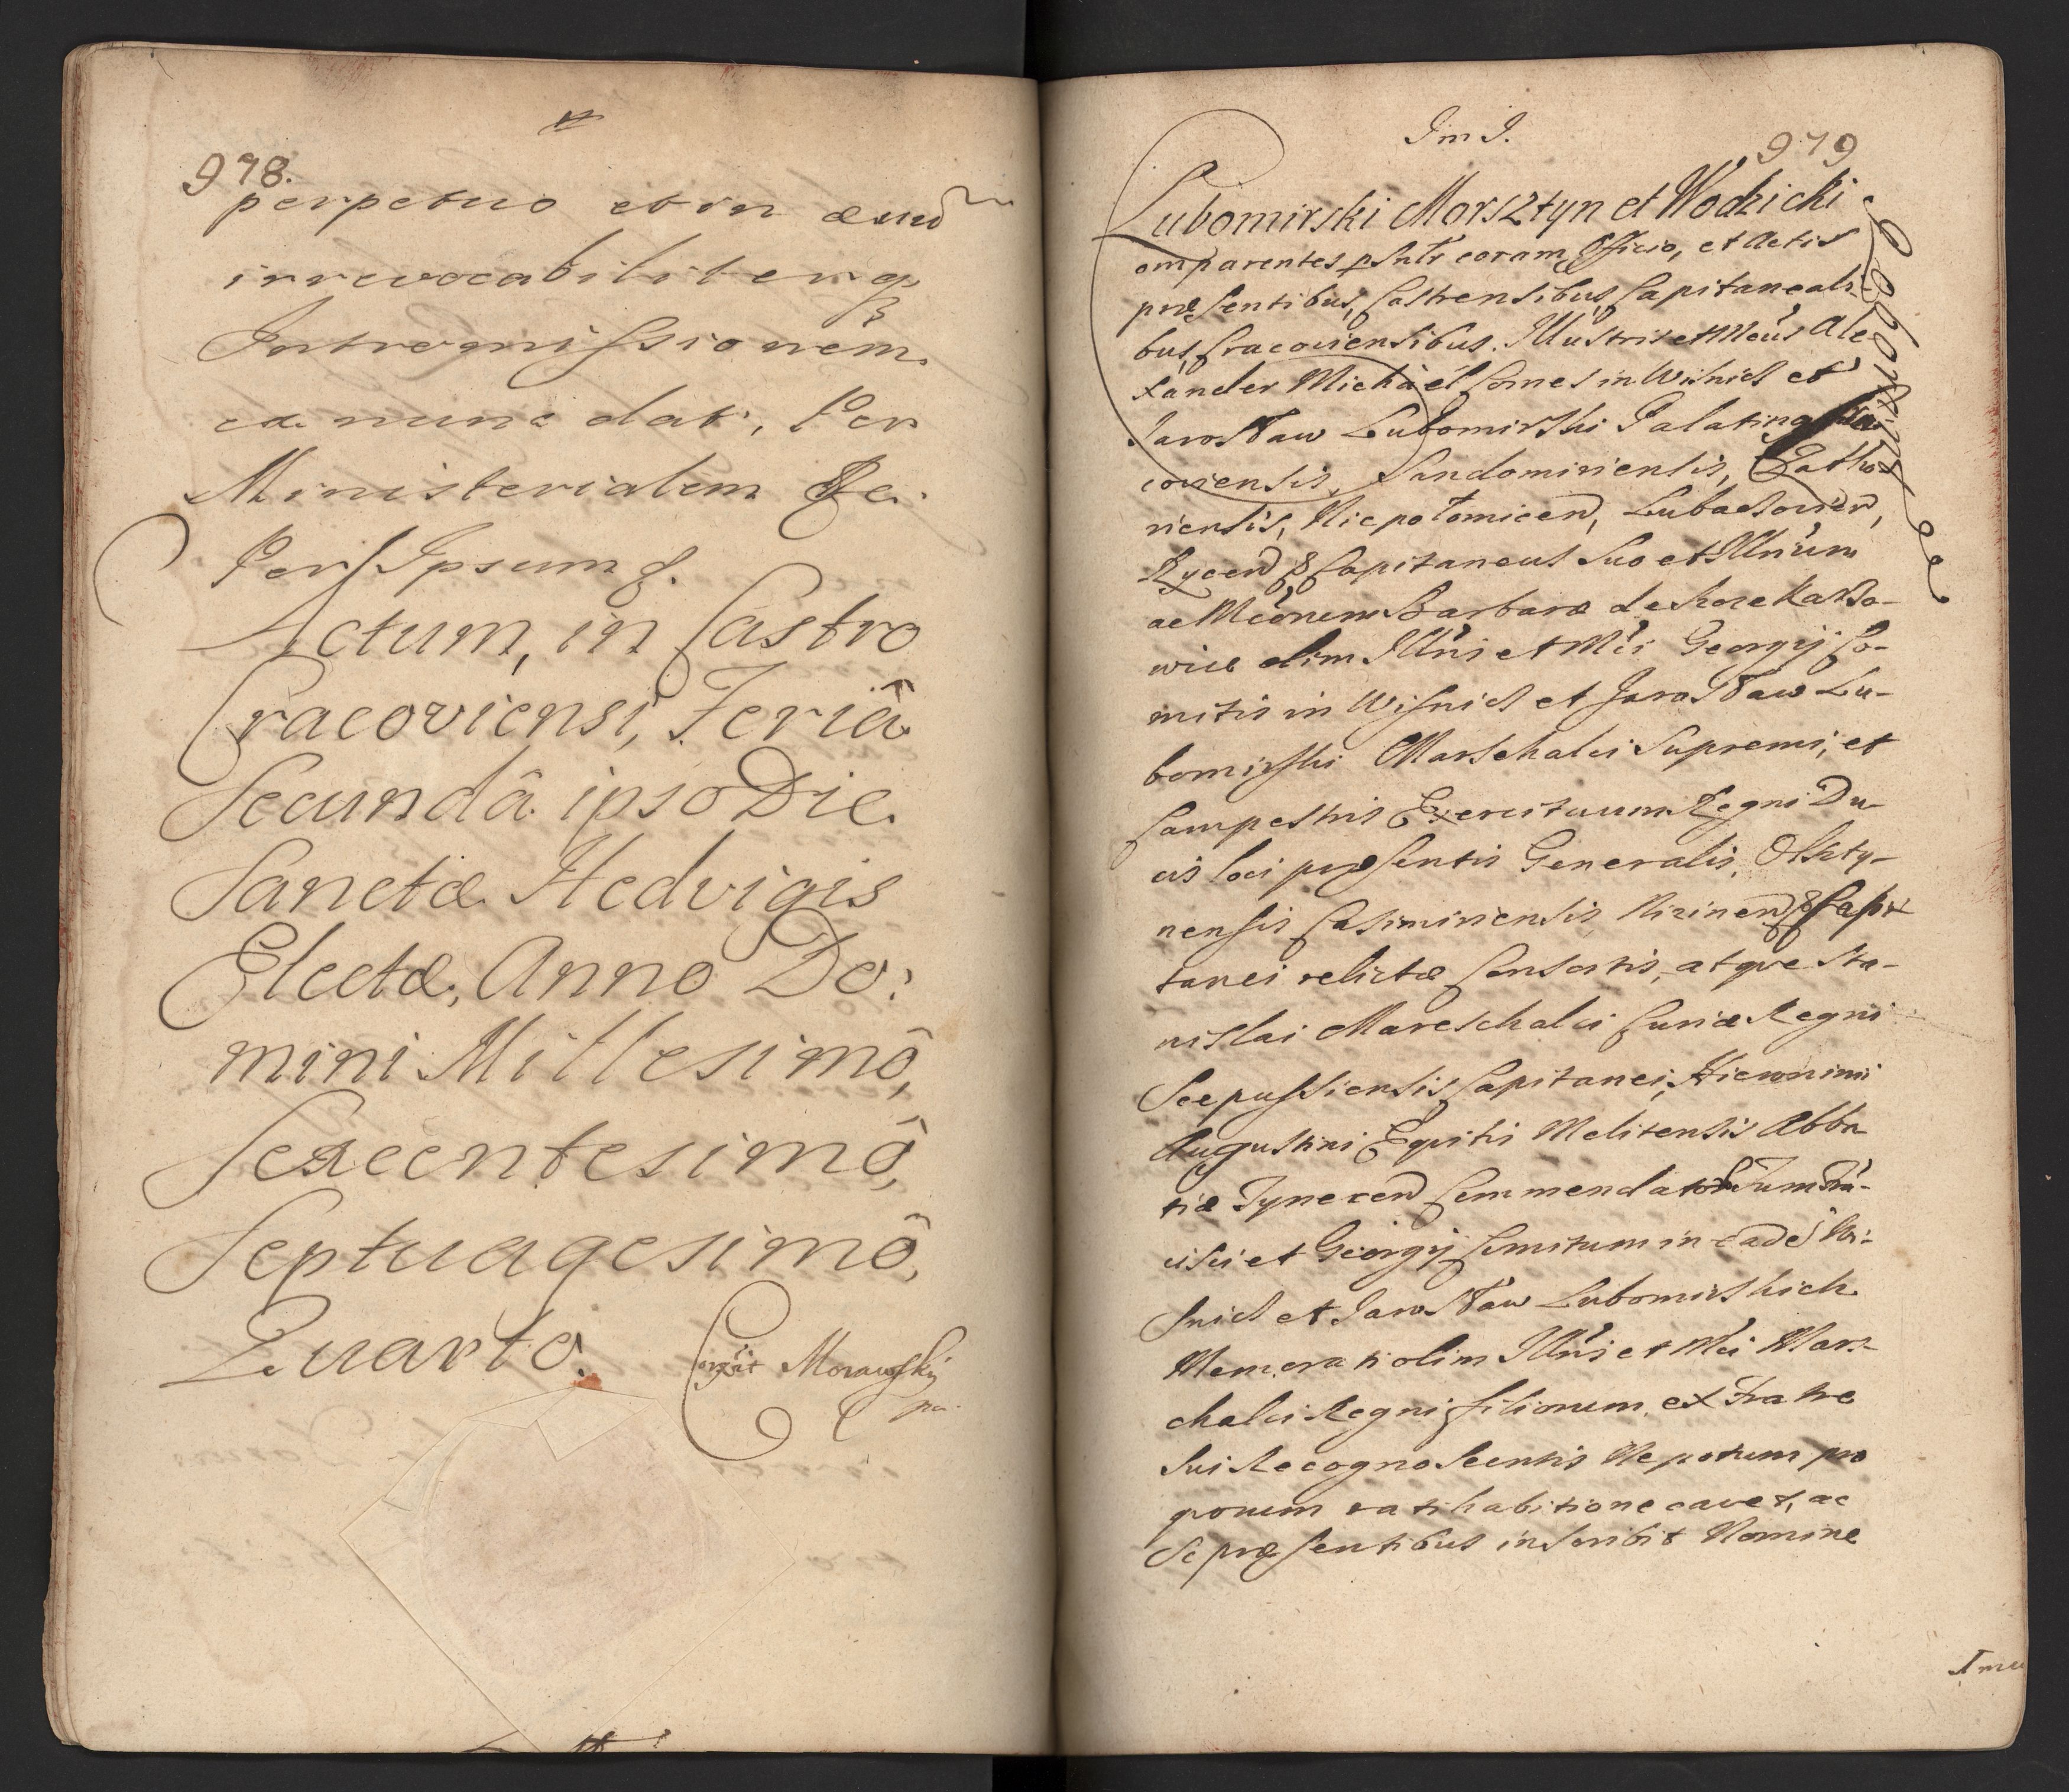 978.
perpetuo et in aevũ
irrevocabiliterq₃
Intromissionem
ex nunc dat, Per
Ministerialem &c.
Per Ipsum &.
Actum, in Castro
Cracoviensi, Feriâ
Secundâ ipso Die
Sanctæ Hedvigis
Electæ, Anno Do:
mini Millesimô,
Sexcentesimô,
Septuagesimô,
Quarto.
Corr̃it Morawski
mp.
Im I.
979
Lubomirski Morsztyn et Wodzicki
Comparentes psñlr coram Officio, et Actis
præsentibus, Castrensibus Capitaneali-
bus, Cracoviensibus. Illustris et Mcus Ale
xander Michael Comes in Wisnicz et
Jarosław Lubomirski Palatinus Cra
coviensis, Sandomiriensis, Zatho
riensis, Niepołomicen̄, Lubaczovien̄,
Rycen̄ & Capitaneus Suo et Illr̃ium
ac Mcorum Barbaræ de
wice olim Illris et Mci Georgij Co-
mitis in Wisnicz et Jarosław Lu-
bomirski Marschalci Supremi, et
Campestris Exercituum Regni Du-
cis loci præsentis Generalis, Olszty-
nensis Casimiriensis Nizinen̄ & Capi
tanei relictæ Consortis, atque Sta-
nislai Mareschalci Curiæ Regni
Scepusiensis Capitanei, Hieronimi
Augustini Equitis Melitensis Abba
tiæ Tynecen̄ Commendatorÿ Tum Frã-
cisci et Georgij Comitum in eadẽ Wi-
snicz et Jarosław Lubomirskich
Memorati olim Illris et Mci Mars-
chalci Regni filiorum, ex Fratre
Sui Recognoscentis Nepotum pro
quorum ratihabitione cavet, ac
Se præsentibus inscribit Nomine